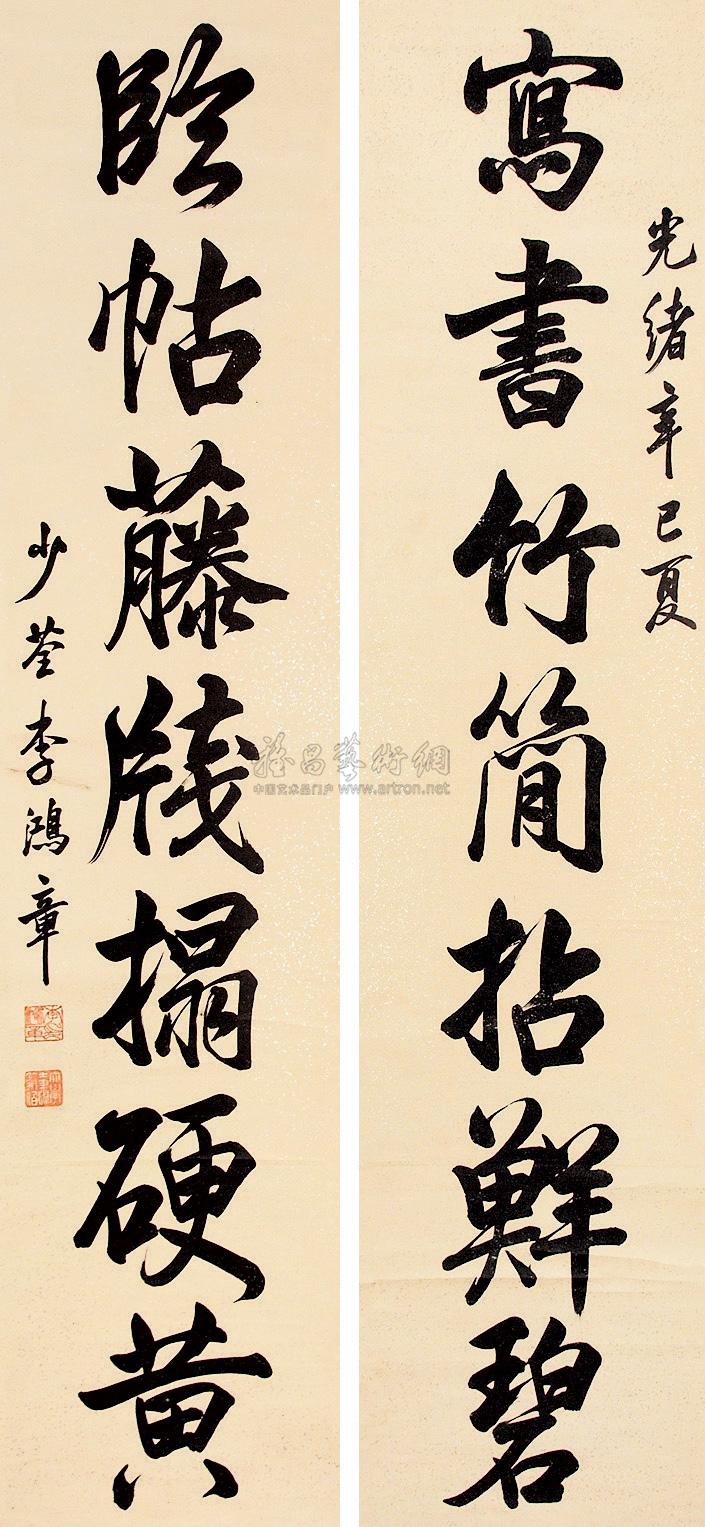 光緒辛巳夏
寫書竹簡拈鮮碧
臨帖藤牋搨硬黃
少荃李鴻章
雅昌藝術網
中国艺术品门户 www.artron.net